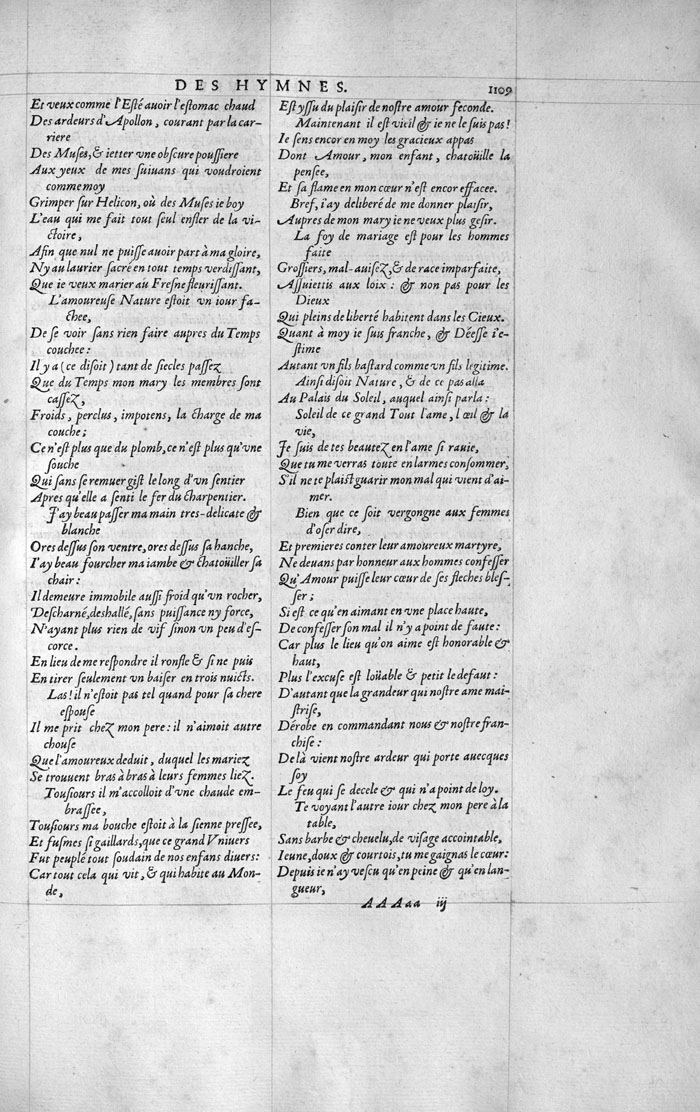 DES HYMNES. 1109
Et veux comme l'Esté auoir l'estomac chaud
Des ardeurs d'Apollon, courant par la car-
riere
Des Muses, & ietter vne obscure poussiere
Aux yeux de mes suiuans qui voudroient
comme moy
Grimper sur Helicon, où des Muses ie boy
L'eau qui me fait tout seul enfler de la vi-
ctoire,
Afin que nul ne puisse auoir part à ma gloire,
Ny au laurier sacré en tout temps verdissant,
Que ie veux marier au Fresne fleurissant.
L'amoureuse Nature estoit vn iour fa-
chee,
De se voir sans rien faire aupres du Temps
couchee:
Il y a (ce disoit) tant de siecles passez
Que du Temps mon mary les membres sont
cassez,
Froids, perclus, impotens, la charge de ma
couche;
Ce n'est plus que du plomb, ce n'est plus qu'vne
souche
Qui sans se remuer gist le long d'vn sentier
Apres qu'elle a senti le fer du charpentier.
J'ay beau passer ma main tres-delicate &
blanche
Ores dessus son ventre, ores dessus sa hanche,
I'ay beau fourcher ma iambe & chatoüiller sa
chair:
Il demeure immobile aussi froid qu'vn rocher,
Descharné, deshallé, sans puissance ny force,
N'ayant plus rien de vif sinon vn peu d'es-
corce.
En lieu de me respondre il ronfle & si ne puis
En tirer seulement vn baiser en trois nuicts.
Las! il n'estoit pas tel quand pour sa chere
espouse
Il me prit chez mon pere: il n'aimoit autre
chouse
Que l'amoureux deduit, duquel les mariez
Se trouuent bras à bras à leurs femmes liez.
Tousiours il m'accolloit d'vne chaude em-
brassee,
Tousiours ma bouche estoit à la sienne pressee,
Et fusmes si gaillards, que ce grand Vniuers
Fut peuplé tout soudain de nos enfans diuers:
Car tout cela qui vit, & qui habite au Mon-
de,
Est yssu du plaisir de nostre amour feconde.
Maintenant il est vieil & ie ne le suis pas!
Ie sens encor en moy les gracieux appas
Dont Amour, mon enfant, chatoüille la
pensee,
Et sa flame en mon cœur n'est encor effacee.
Bref, i'ay deliberé de me donner plaisir,
Aupres de mon mary ie ne veux plus gesir.
La foy de mariage est pour les hommes
faite
Grossiers, mal-auisez, & de race imparfaite,
Assuiettis aux loix: & non pas pour les
Dieux
Qui pleins de liberté habitent dans les Cieux.
Quant à moy ie suis franche, & Déesse i'e-
stime
Autant vn fils bastard comme vn fils legitime.
Ainsi disoit Nature, & de ce pas alla
Au Palais du Soleil, auquel ainsi parla:
Soleil de ce grand Tout l'ame, l'œil & la
vie,
Je suis de tes beautez en l'ame si rauie,
Que tu me verras toute en larmes consommer,
S'il ne te plaist guarir mon mal qui vient d'ai-
mer.
Bien que ce soit vergongne aux femmes
d'oser dire,
Et premieres conter leur amoureux martyre,
Ne deuans par honneur aux hommes confesser
Qu'Amour puisse leur cœur de ses fleches bles-
ser;
Si est ce qu'en aimant en vne place haute,
De confesser son mal il n'y a point de faute:
Car plus le lieu qu'on aime est honorable &
haut,
Plus l'excuse est loüable & petit le defaut:
D'autant que la grandeur qui nostre ame mai-
strise,
Dérobe en commandant nous & nostre fran-
chise:
De là vient nostre ardeur qui porte auecques
soy
Le feu qui se decele & qui n'a point de loy.
Te voyant l'autre iour chez mon pere à la
table,
Sans barbe & cheuelu, de visage accointable,
Ieune, doux & courtois, tu me gaignas le cœur:
Depuis ie n'ay vescu qu'en peine & qu'en lan-
gueur,
AAAaa iij